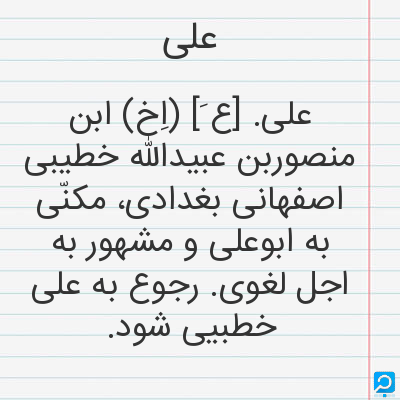 علی
علی. [ع َ] (اِخ) ابن
منصوربن عبیداللّه خطیبی
اصفهانی بغدادی، مکنّی
به ابوعلی و مشهور به
اجل لغوی. رجوع به علی
خطبیی شود.